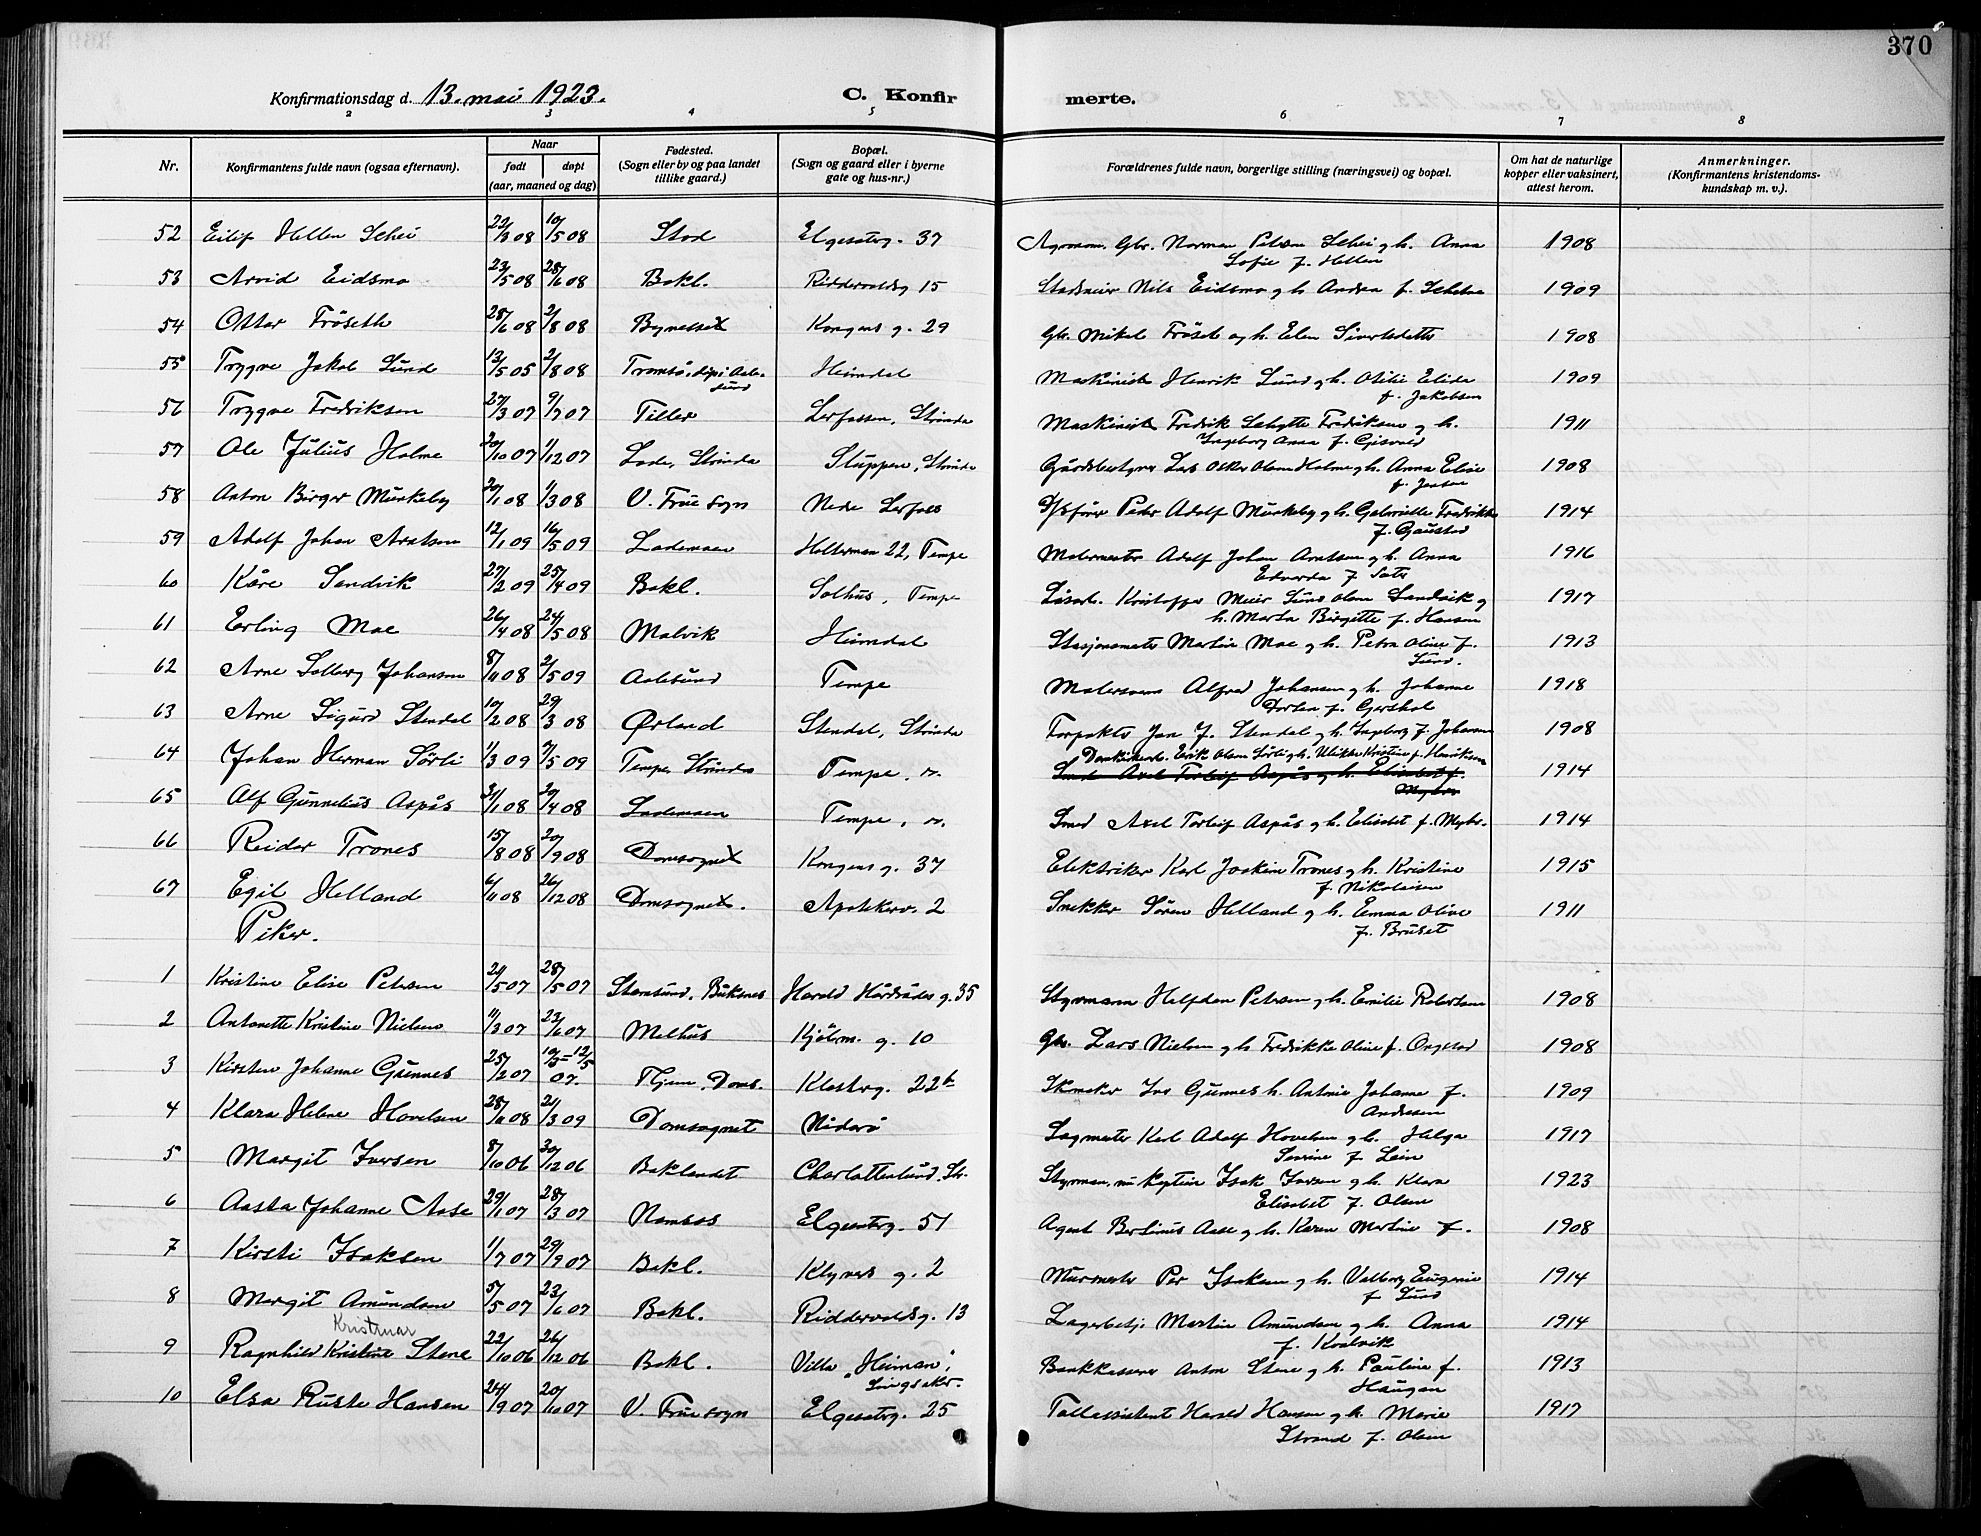 370
Konfirmationsdag d. 13. mai 1923. C. Konfirmerte.
2 3 4 5 6 7 8
Nr. Konfirmantens fulde navn (ogsaa efternavn). Naar født døpt (aar, maaned og dag) Fødested. (Sogn eller by og paa landet tillike gaard.) Bopæl. (Sogn og gaard eller i byerne gate og hus-nr.) Forældrenes fulde navn, borgerlige stilling (næringsvei) og bopæl. Om hat de naturlige kopper eller vaksinert, attest herom. Anmerkninger. (Konfirmantens kristendomskundskap m. v.).
52 Eilif Hellen Schei 23/3 08 10/5 08 Stod Elgesetrg. 37 Agronom. Gbr. Norman Petersen Schei og h. Anna 1908
Sofie f. Hellen
53 Arvid Eidsmo 23/5 08 28/6 08 Bakl. Riddervoldsg 15 Nils Eidsmo og h. Andrea f. 1909
54 Ottar Fröseth 28/6 08 2/8 08 Bynesset Kongens g. 29 Gbr. Mikal Fröset og h. Elen Sivertsdatter 1908
55 Trygve Jakob Lund 13/5 05 2/8 08 Tromsö, döpt i Aalesund Heimdal Maskinist Henrik Lund og h. Otilie Elida 1909
f. Jakobsen
56 Trygve Fredriksen 27/3 07 9/7 07 Tiller Lerfossen, Strinda Maskinist Fredrik Schytte Fredriksen og h. 1911
Ingeborg Anna f. Gisvold
57 Ole Julius Holme 20/10 07 1/12 07 Lade, Strinda Sluppen, Strinda Gårdsbestyrer Lars Oskar Olsen Holme og h. Anna Elise 1908
f. Jensen
58 Anton Birger Munkeby 20/1 08 1/3 08 V. Frue sogn Nedre Lerfoss Peder Adolf Munkeby og h. Gabrielle Fredrikke 1914
f. Gaustad
59 Adolf Johan Arntsen 12/1 09 16/5 09 Lademoen Holtermann 22, Tempe Malermester Adolf Johan Arntsen og h. Anna 1916
Edvarda f. Sæter
60 Kåre Sandvik 27/2 09 25/4 09 Bakl. Solhus, Tempe Løsarb. Kristoffer Meier Lund Olsen Sandvik og 1917
h. Marta Birgitte f. Hansen
61 Erling Moe 26/4 08 24/5 08 Malvik Heimdal Stasjonsmester Martin Moe og h. Petra Oline f. 1913
Lund.
62 Arne Solberg Johansen 8/11 08 2/5 09 Aalesund Tempe Malersvenn Alfred Johansen og h. Johanne 1918
Dortea f. Gjershol
63 Arne Sigurd Stendal 10/2 08 29/3 08 Ørland Stendal, Strinda Forpakter Jon J. Stendal og h. Ingeborg f. Johansen 1908
64 Johan Herman Sörli 1/3 09 9/5 09 Tempe, Strinda Tempe, ". Erik Olsen Sörli og h. Ulrikke Kristine f. Henriksen 1914
Smed Axel Torleif Aspås og h. Elisabet f.
Myhre
65 Alf Gunnelius Aspås 31/1 08 20/4 08 Lademoen Tempe, ". Smed Axel Torleif Aspås og h. Elisabet f. Myhr. 1914
66 Reidar Trones 15/8 08 20/9 08 Domsognet Kongens g. 37 Elektriker Karl Joakim Trones og h. Kristine 1915
f. Nikolaisen
67 Egil Helland 6/11 08 26/12 08 Domsognet. Apotekerv. 2 Snekker Sören Helland og h. Emma Olive 1911
f. Bruset
Piker.
1 Kristine Elise Petersen 21/5 07 28/5 07 Stamsund, Buksnes Harald Hårdrådes g. 35 Styrmann Halfdan Petersen og h. Emilie Robertsen 1908
2 Antonette Kristine Nielsen 11/3 07 23/6 07 Melhus Kjölm. g. 10 Gbr. Lars Nielsen og h Fredrikke Oline f. 1908
3 Kirsten Johanne Gunnes 25/2 07 10/3–12/5 07. Thjem. Doms. Klosterg. 22b Skomaker Ivar Gunnes h. Antonie Johanne f. 1909
Andresen
4 Klara Helene Hovelsen 28/11 08 21/3 09 Domsognet Nidarö Sagmester Karl Adolf Hovelsen og h. Helga 1917
Severine f. Lein
5 Margit Iversen 8/10 06 30/12 06 Baklandet Charlottenlund, Str. Styrman, nu kaptein Isak Iversen og h. Klara 1923
Elisabet f. Olsen
6 Aasta Johanne Aase 29/1 07 28/3 07 Namsos Elgesetrg. 51 Agent Bertinius Aase og h. Karen Martine f. 1908
7 Kirsti Isaksen 1/7 07 29/9 07 Bakl. Klyvers g. 2 Murmester Per Isaksen og h. Valborg Eugenie 1914
f Lund
8 Margit Amundsen 5/5 07 23/6 07 Bakl. Riddervoldsg. 13 Lagerbetj. Martin Amundsen og h. Anna 1914
f. Kvalvik
Kristmar
9 Ragnhild Kristine Stene 22/10 06 26/12 06 Bakl. Villa „Heiman", Bankkasserer Anton Stene og h. Pauline f. 1913
Singsaker. Haugan
10 Elsa Ruste Hansen 24/9 07 20/10 07 V. Frue sogn Elgesetrg. 25 Tollassistent Harald Hansen og h. Marie 1917
Strand f. Olsen